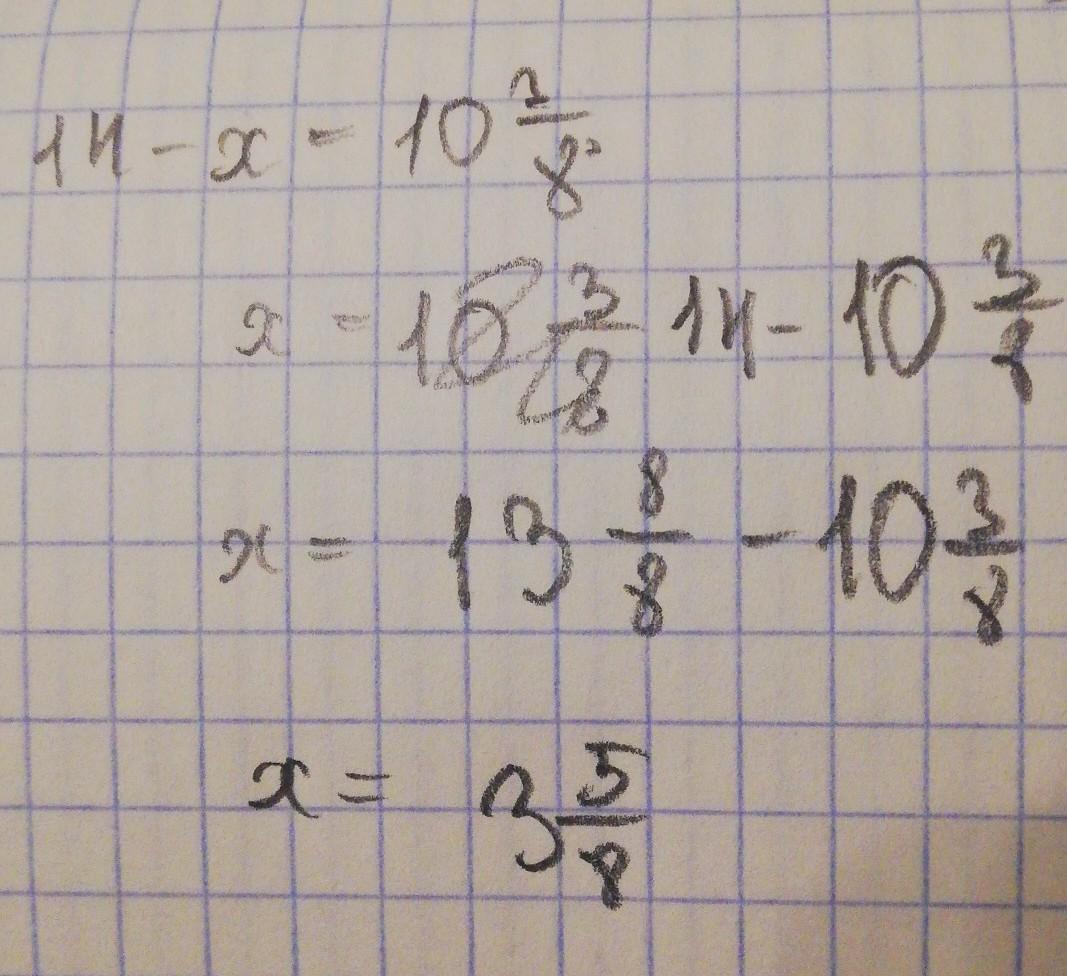 14 - x = 10 3/8
x = 14 - 10 3/8
x = 13 8/8 - 10 3/8
x = 3 5/8